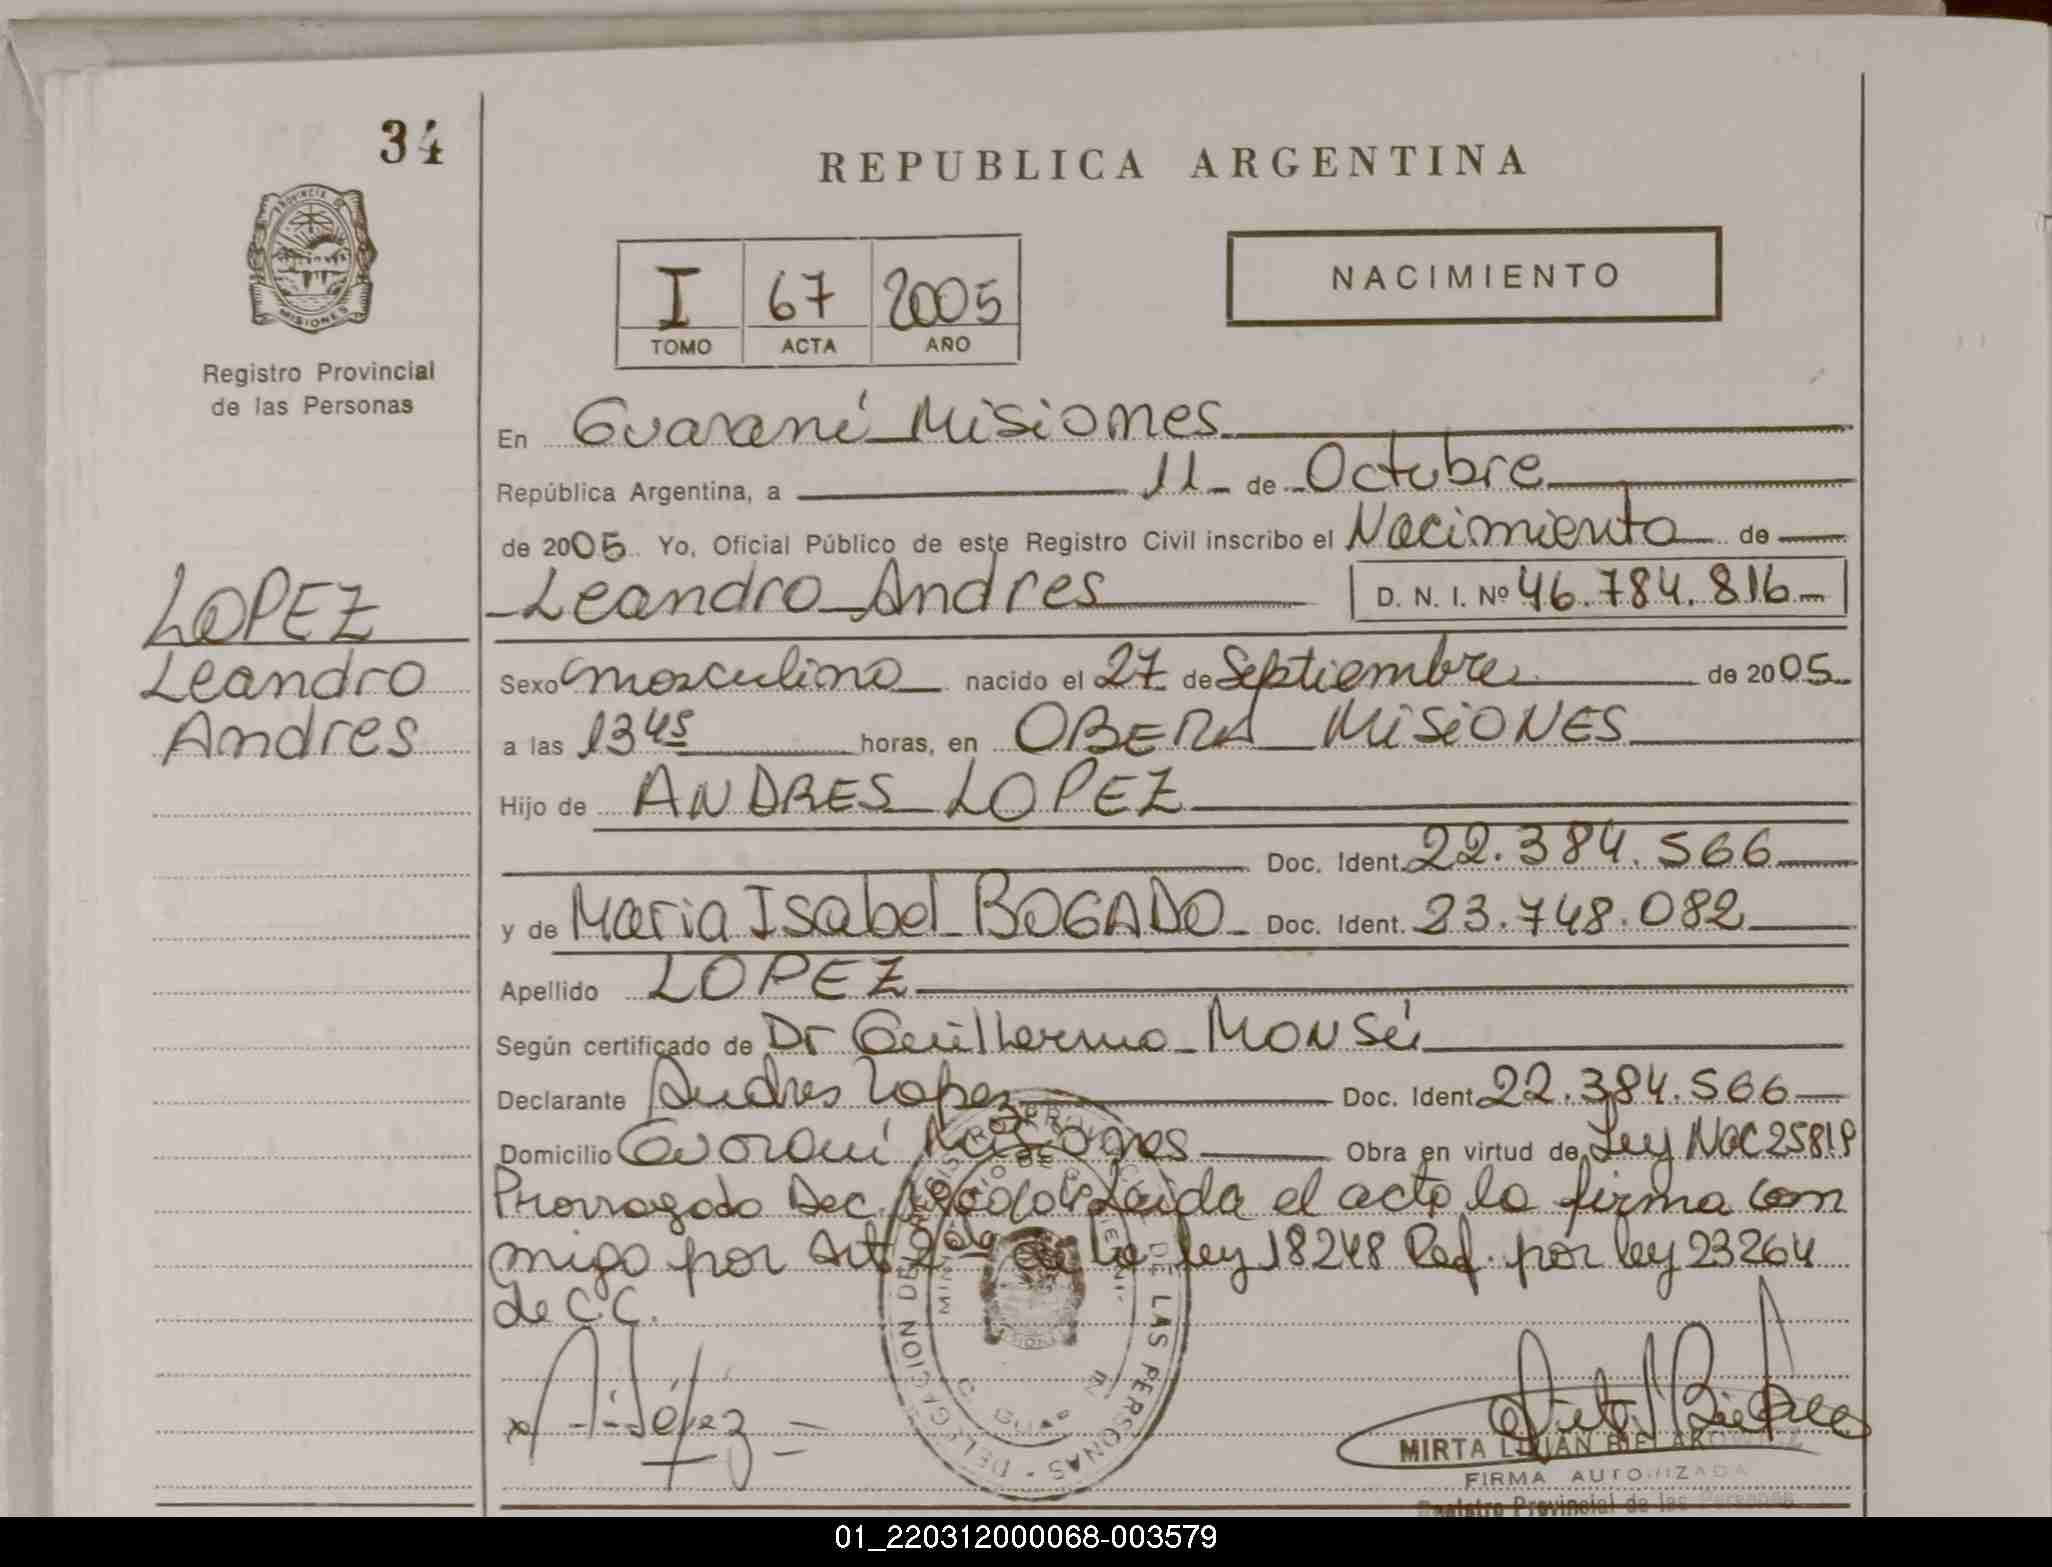 34
REPUBLICA ARGENTINA
PROVINCIA DE
MISIONES
NACIMIENTO
I 67 2005
TOMO ACTA AÑO
Registro Provincial
de las Personas
En Guaraní Misiones
República Argentina, a 11 de Octubre
de 2005 Yo, Oficial Público de este Registro Civil inscribo el Nacimiento de
Leandro Andres D. N. I. Nº 46.784.816
LOPEZ
Leandro
Andres
Sexo masculino nacido el 27 de Septiembre de 2005
a las 13 45 horas, en OBERA MISIONES
Hijo de ANDRES LOPEZ
Doc. Ident. 22.384.566
y de Maria Isabel BOGADO Doc. Ident. 23.748.082
Apellido LOPEZ
Según certificado de Dr Guillermo
Declarante Andres Lopez Doc. Ident. 22.384.566
Domicilio Guaraní Misiones Obra en virtud de Ley Nac 25819
Prorrogado Dec. Leida el acta la firma con
migo por Art de la ley 18248 Ref. por ley 23264
de C.C.
A. López
DELEGACION DE LAS PERSONAS
MIRTA LILIAN
FIRMA AUTORIZADA
Registro Provincial de las Personas
01_220312000068-003579